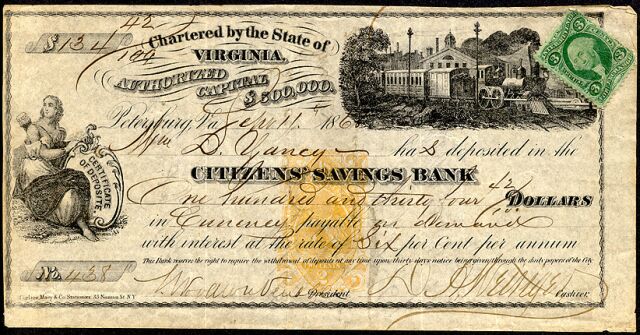 42
$134 100
Chartered by the State of
VIRGINIA,
AUTHORIZED
CAPITAL
$500,000.
3 3
3 3
Petersburg, Va Sept 11 186
Wm D. Yancey has deposited in the
CITIZENS' SAVINGS BANK
CERTIFICATE
OF DEPOSITE.
One hundred and thirty four 42/100 DOLLARS
in Currency payable on demand
with interest at the rate of Six per Cent per annum
This Bank reserves the right to require the withdrawal of deposits at any time upon thirty days notice being given through the daily papers of the City
No 438
President
Cashier
Mary & Co. Stationers 35 Nassau St. N.Y.